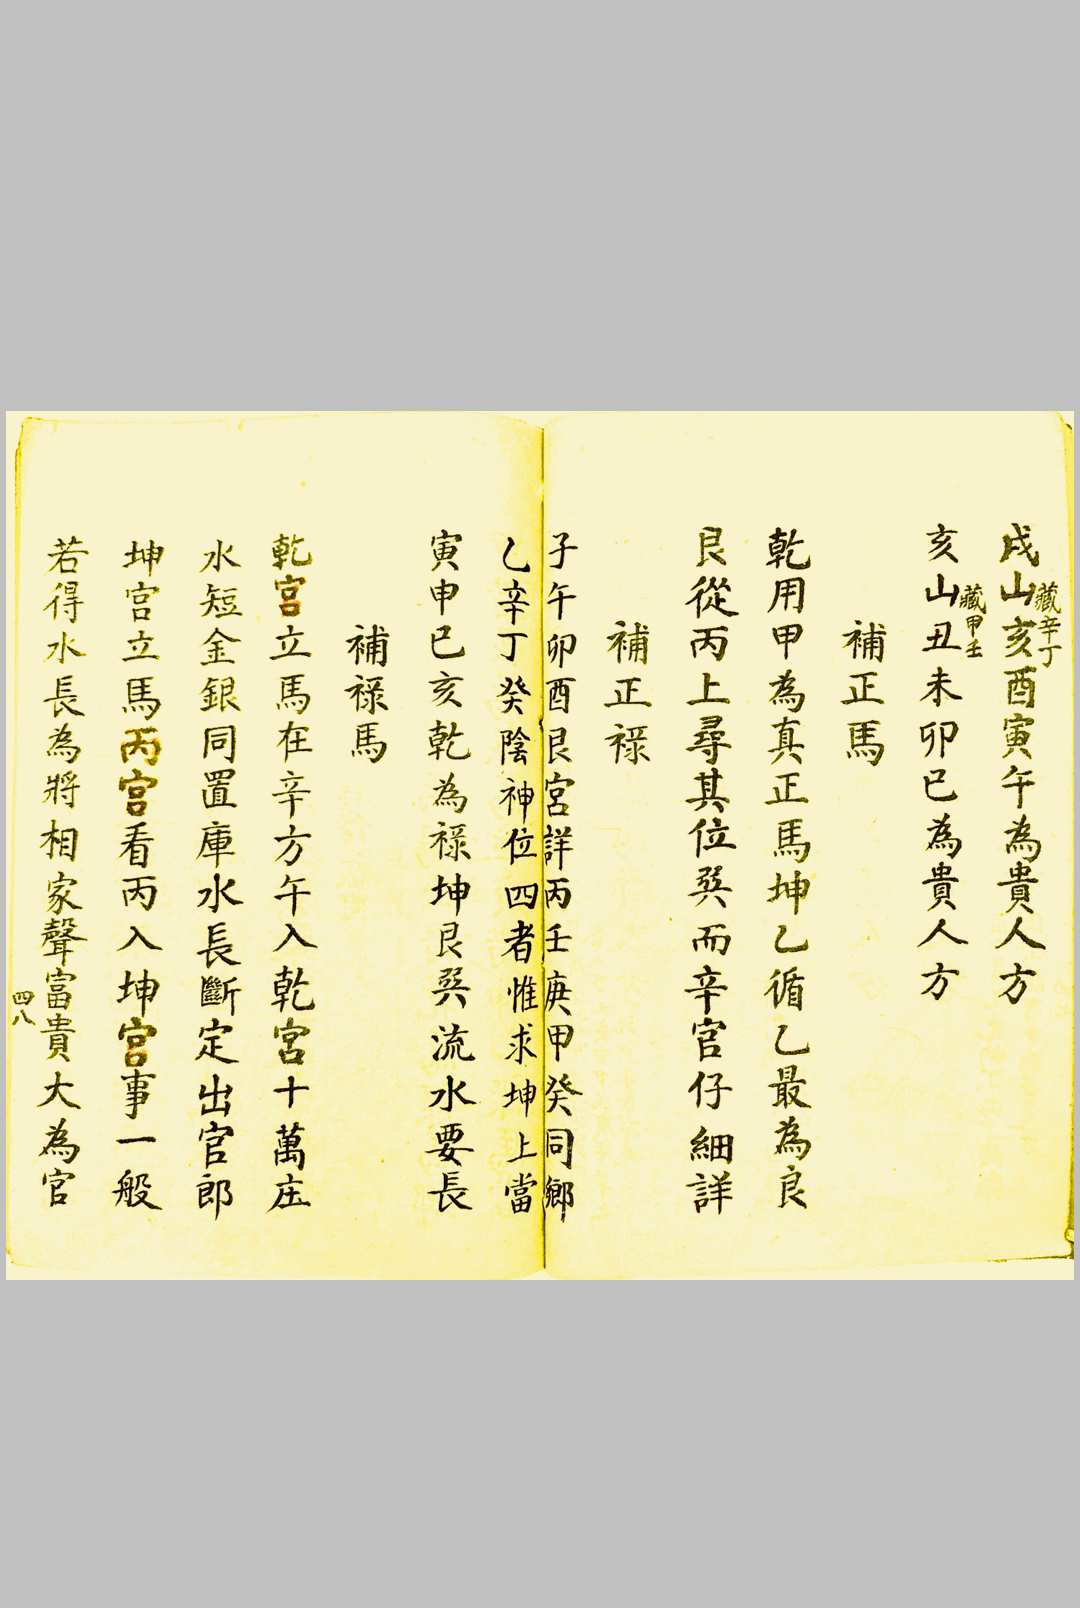 戌山藏辛丁亥酉寅午為貴人方
亥山藏甲壬丑未卯巳為貴人方
補正馬
乾用甲為真正馬坤乙循乙最為良
艮從丙上尋其位巽而辛官仔細詳
補正祿
子午卯酉艮宮詳丙壬庚甲癸同鄉
乙辛丁癸陰神位四者惟求坤上當
寅申巳亥乾為祿坤艮巽流水要長
補祿馬
乾宮立馬在辛方午入乾宮十萬庄
水短金銀同置庫水長斷定出官郎
坤宮立馬丙宮看丙入坤宮事一般
若得水長為將相家聲富貴大為官
四八